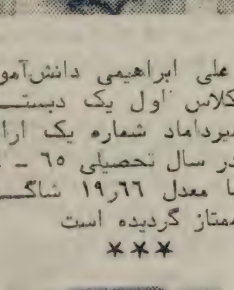 علی ابراهیمی دانش‌آمو
کلاس اول یک دبستـ
میرداماد شماره یک ارا
در سال تحصیلی ٦٥ ـ
ا معدل ١٩٫٦٦ شاگـ
ممتاز گردیده است
***